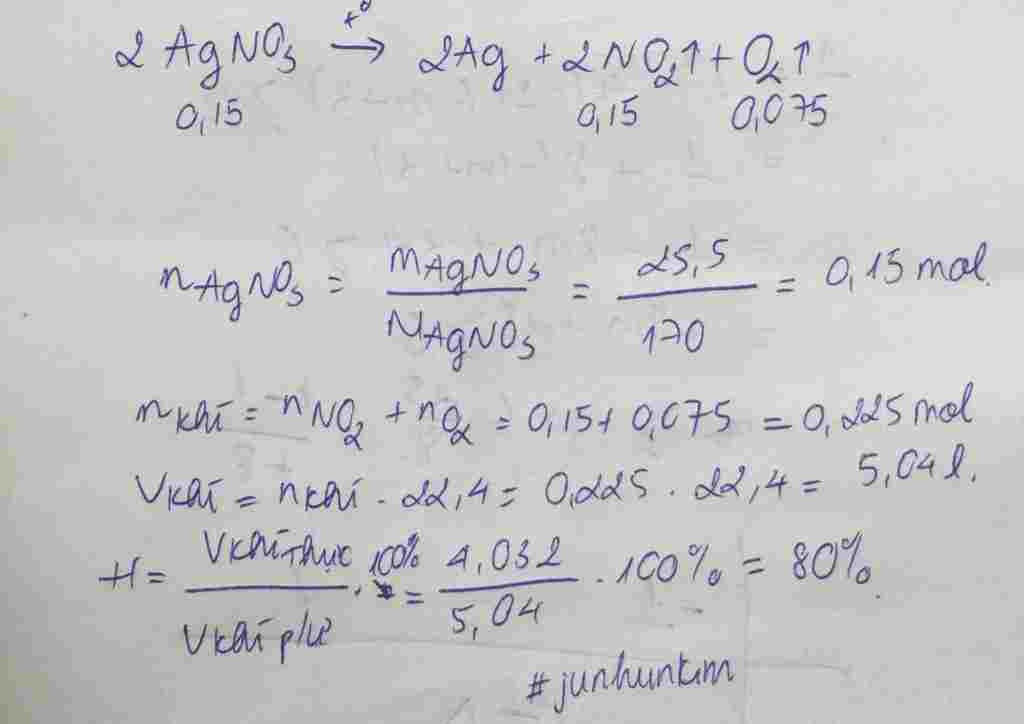 2 AgNO₃ —t°→ 2Ag + 2NO₂↑ + O₂↑
0,15 0,15 0,075
nAgNO₃ = mAgNO₃ / MAgNO₃ = 25,5 / 170 = 0,15 mol.
nkhí = nNO₂ + nO₂ = 0,15 + 0,075 = 0,225 mol
Vkhí = nkhí . 22,4 = 0,225 . 22,4 = 5,04 l.
H = Vkhí thực / Vkhí p/ư . 100% = 4,032 / 5,04 . 100% = 80%.
#junhunkm